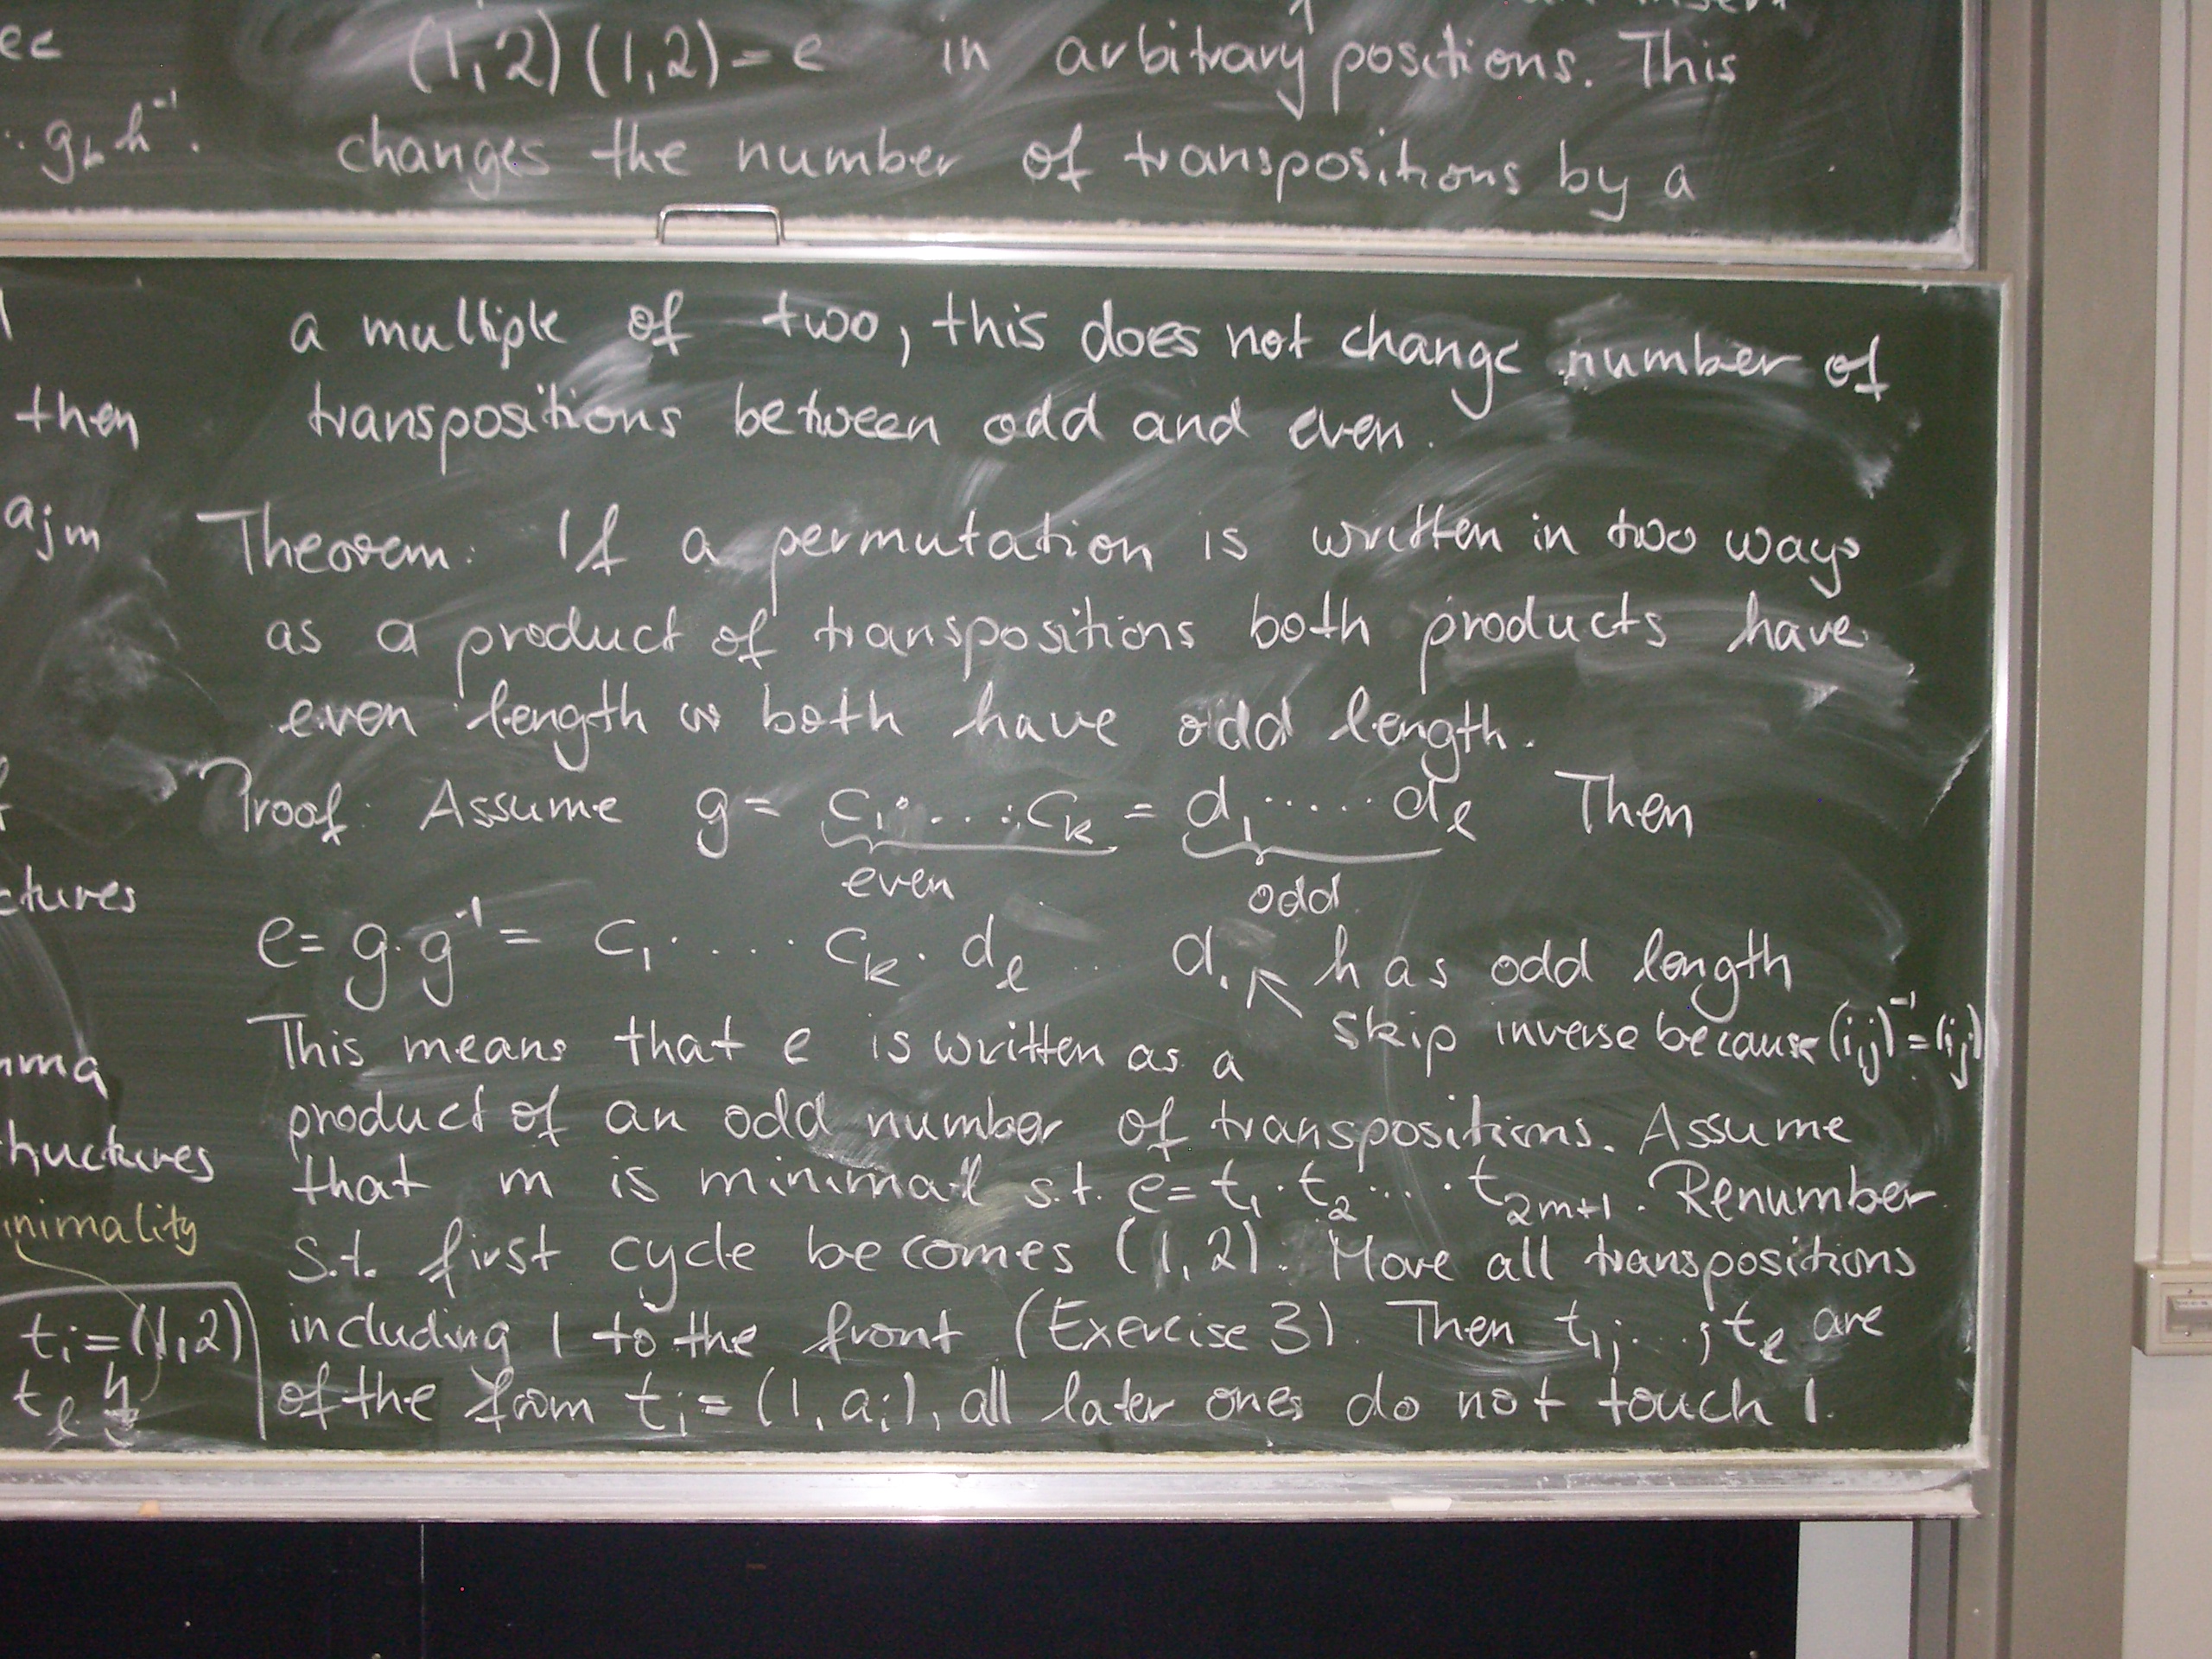 ec
g h⁻¹.
(1,2)(1,2)=e in arbitrary positions. This
changes the number of transpositions by a
a multiple of two, this does not change number of
transpositions between odd and even.
Theorem: If a permutation is written in two ways
as a product of transpositions both products have
even length or both have odd length.
Proof: Assume g = c₁·...·cₖ = d₁·....dₗ Then
even odd
e = g·g⁻¹ = c₁·...·cₖ·dₗ ... d₁ ↖ has odd length
This means that e is written as a skip inverse because (i,j)⁻¹=(i,j)
product of an odd number of transpositions. Assume
that m is minimal s.t. e = t₁·t₂·...·t₂ₘ₊₁. Renumber
s.t. first cycle becomes (1,2). Move all transpositions
including 1 to the front (Exercise 3). Then t₁,...,tₗ are
of the from tᵢ = (1,aᵢ), all later ones do not touch 1.
then
ajm
ctures
ma
ructures
nimality
tᵢ=(1,2)
tₗ